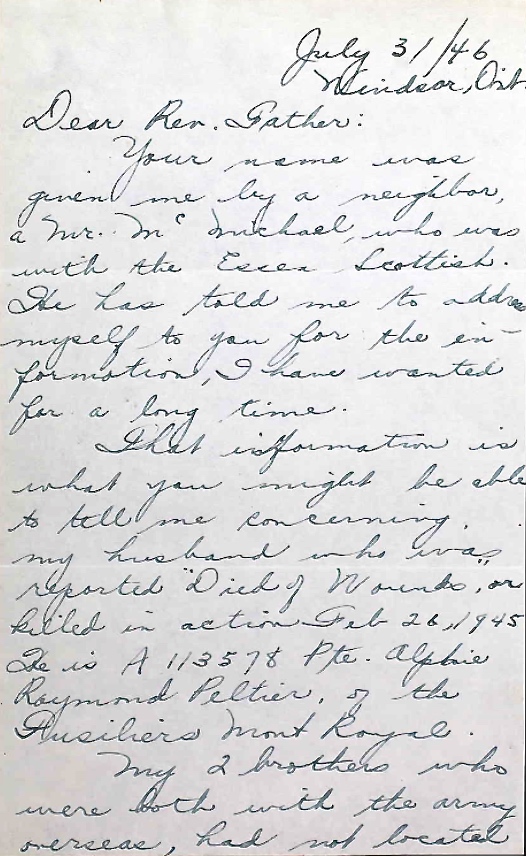 July 31/46
Windsor, Ont.
Dear Rev. Father:
Your name was
given me by a neighbor,
a Mr. Mc Michael, who was
with the Essex Scottish.
He has told me to addre
myself to you for the en-
formation, I have wanted
for a long time.
That information is
what you might be able
to tell me concerning,
my husband who was
reported "Died of Wounds", or
killed in action Feb 26, 1945
He is A 113578 Pte. Alphie
Raymond Peltier, of the
Fusiliers Mont Royal.
My 2 brothers who
were both with the army
overseas, had not located